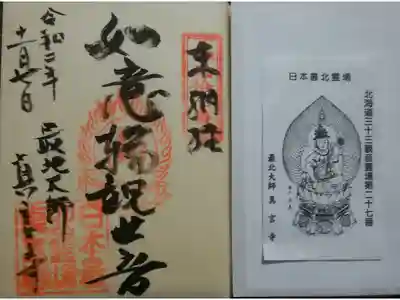 奉納経
如意輪観世音
最北大師
真言寺
令和二年
十一月七日
日本最北霊場
北海道三十三観音霊場第二十七番
最北大師 真言寺